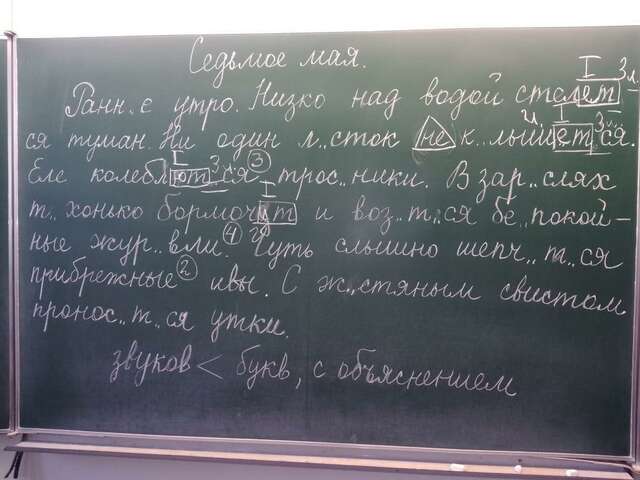 Седьмое мая.
I 3л.
Ранн..е утро. Низко над водой стелет
и. I 3л.
ся туман. Ни один л..сток не к..лышет..ся.
I 3
Еле колеблют..ся③ трос..ники. В зар..слях
I
т..хонько бормочут и воз..т..ся бе..покой-
ные жур..вли.④ Чуть слышно шепч..т..ся
прибрежные② ивы. С ж..стяным свистом
пронос..т..ся утки.
звуков < букв, с объяснением